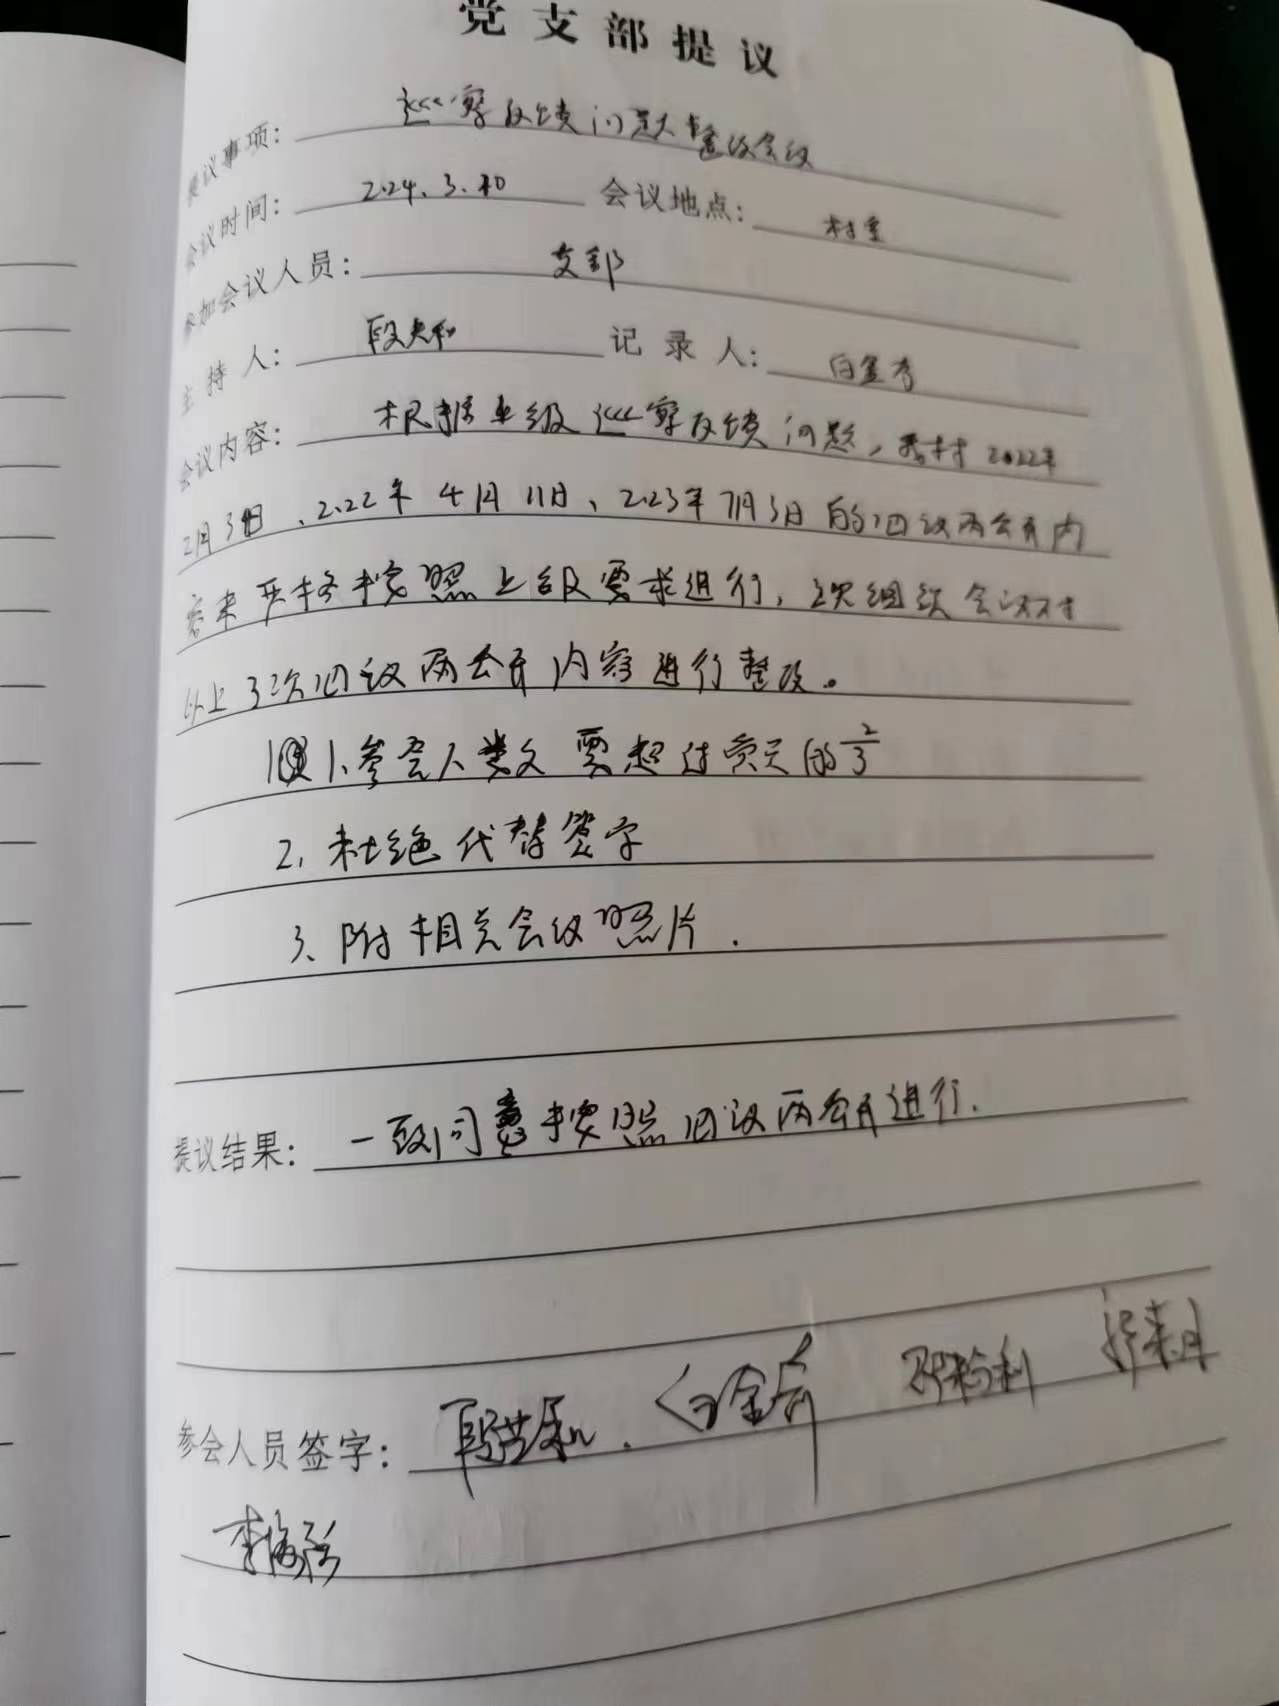 党支部提议
提议事项: 巡察反馈问题整改会议
会议时间: 2024.3.10 会议地点: 村室
参加会议人员: 支部
主持人: 段共和 记录人: 白金考
会议内容: 根据上级巡察反馈问题,我村2022年
2月3日、2022年4月11日、2023年7月3日的四议两公开内
容未严格按照上级要求进行,这次组织会议对
以上3次四议两公开内容进行整改。
1、参会人数要超过党员的2/3
2、杜绝代替签字
3、附相关会议照片.
提议结果: 一致同意按照四议两公开进行.
参会人员签字: 段共和. 白金考